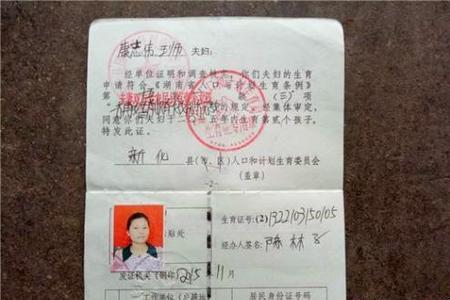 康志伟 王 夫妇:
经单位证明和调查核实,你们夫妇的生育
申请符合《湖南省人口与计划生育条例》
第 款 (三) 项
的规定。经集体审定,
同意你们夫妇于二 五年内生育第贰个孩子。
特发此证。
新化 县(市、区)人口和计划生育委员会
(盖章)
-2-
生育证号:(2)1922103150105
贴处
经办人签名:陈林
发证机关(钢印) 2015年11月
工作单位(户籍地
居民身份证号码